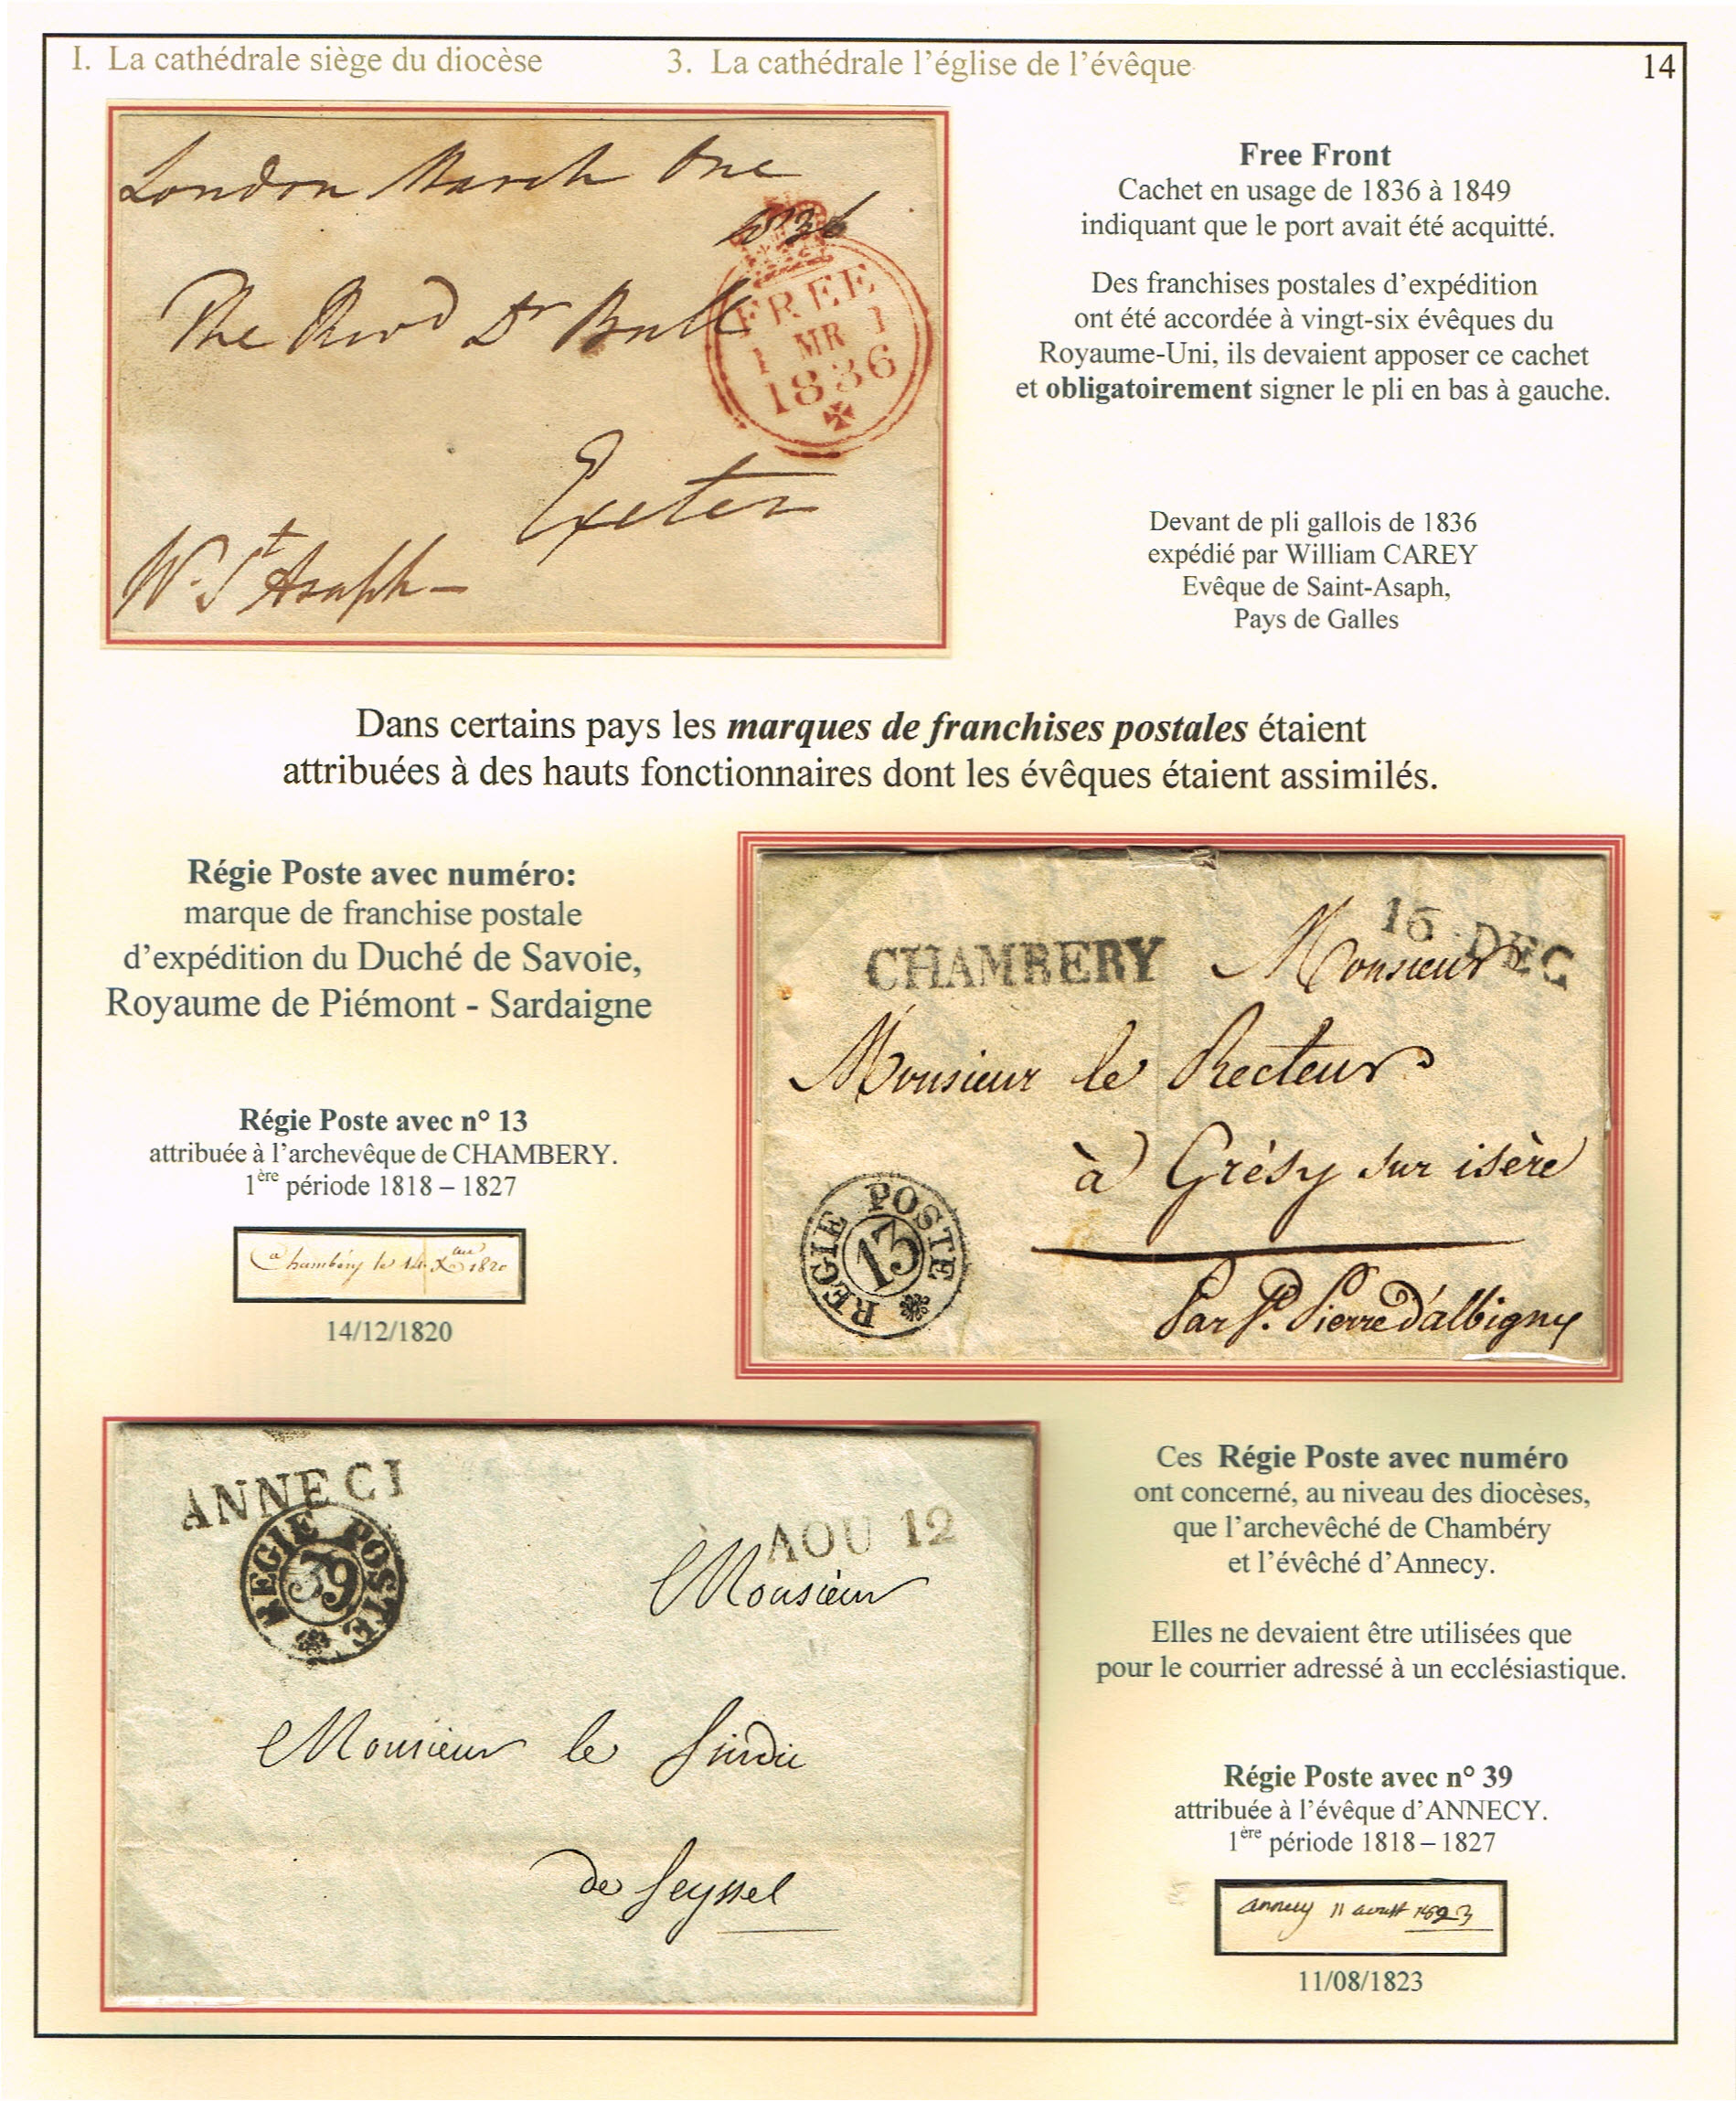 I. La cathédrale siège du diocèse
3. La cathédrale l'église de l'évêque
14
London March One
1836
The Revd Dr Bull
Exeter
W. St Asaph
FREE
1 MR 1
1836
Free Front
Cachet en usage de 1836 à 1849
indiquant que le port avait été acquitté.
Des franchises postales d'expédition
ont été accordée à vingt-six évêques du
Royaume-Uni, ils devaient apposer ce cachet
et obligatoirement signer le pli en bas à gauche.
Devant de pli gallois de 1836
expédié par William CAREY
Evêque de Saint-Asaph,
Pays de Galles
Dans certains pays les marques de franchises postales étaient
attribuées à des hauts fonctionnaires dont les évêques étaient assimilés.
Régie Poste avec numéro:
marque de franchise postale
d'expédition du Duché de Savoie,
Royaume de Piémont - Sardaigne
Régie Poste avec n° 13
attribuée à l'archevêque de CHAMBERY.
1ère période 1818 – 1827
a Chambéry le 14 Xbre 1820
14/12/1820
CHAMBERY
16 DEC
Monsieur
Monsieur le Recteur
à Grésy sur isère
Par St. Pierre d'albigny
REGIE POSTE
13
ANNECI
REGIE POSTE
39
AOU 12
Monsieur
Monsieur le Sindic
de Seyssel
Ces Régie Poste avec numéro
ont concerné, au niveau des diocèses,
que l'archevêché de Chambéry
et l'évêché d'Annecy.
Elles ne devaient être utilisées que
pour le courrier adressé à un ecclésiastique.
Régie Poste avec n° 39
attribuée à l'évêque d'ANNECY.
1ère période 1818 – 1827
annecy 11 aoust 1823
11/08/1823